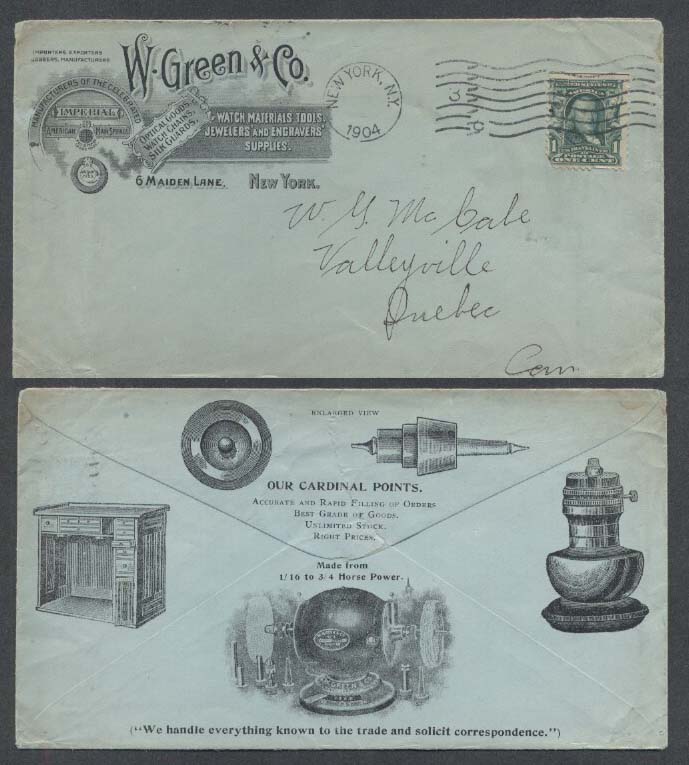 IMPORTERS, EXPORTERS
JOBBERS, MANUFACTURERS
W. Green & Co.
MANUFACTURERS OF THE CELEBRATED
IMPERIAL
AMERICAN MAIN SPRINGS
OPTICAL GOODS,
WATCH CHAINS,
SILK GUARDS,
WATCH MATERIALS, TOOLS,
JEWELERS AND ENGRAVERS'
SUPPLIES.
6 MAIDEN LANE, NEW YORK.
NEW YORK, N.Y.
1904
FRANKLIN
POSTAGE
1 ONE CENT 1
W. G. McCabe
Valleyville
Quebec
Can
ENLARGED VIEW
OUR CARDINAL POINTS.
ACCURATE AND RAPID FILLING OF ORDERS
BEST GRADE OF GOODS.
UNLIMITED STOCK.
RIGHT PRICES.
Made from
1/16 to 3/4 Horse Power.
W. GREEN & CO.
("We handle everything known to the trade and solicit correspondence.")